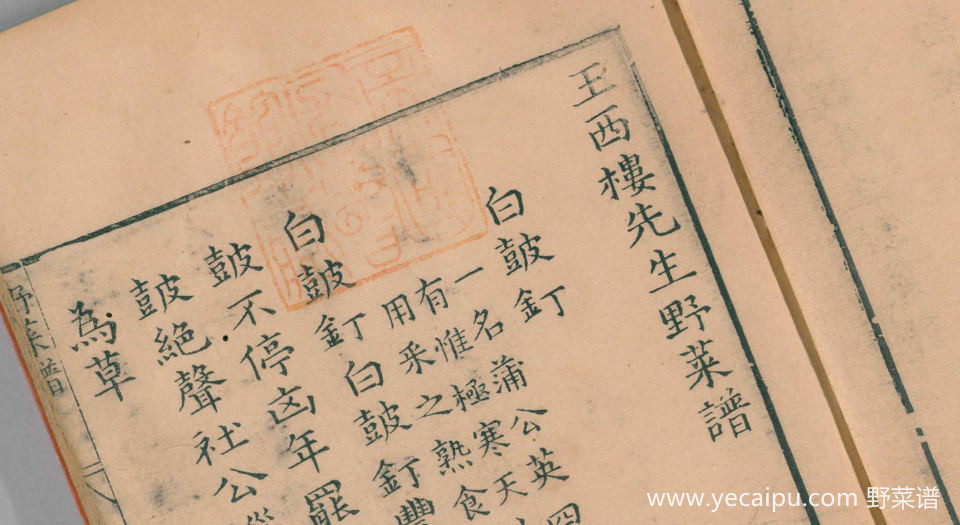 王西樓先生野菜譜
白皷釘
一名蒲公英四
有惟極寒天
用采之熟食
白皷釘白皷釘豐
皷不停凶年罷
皷絕聲社公
為草
野菜譜
www.yecaipu.com 野菜谱